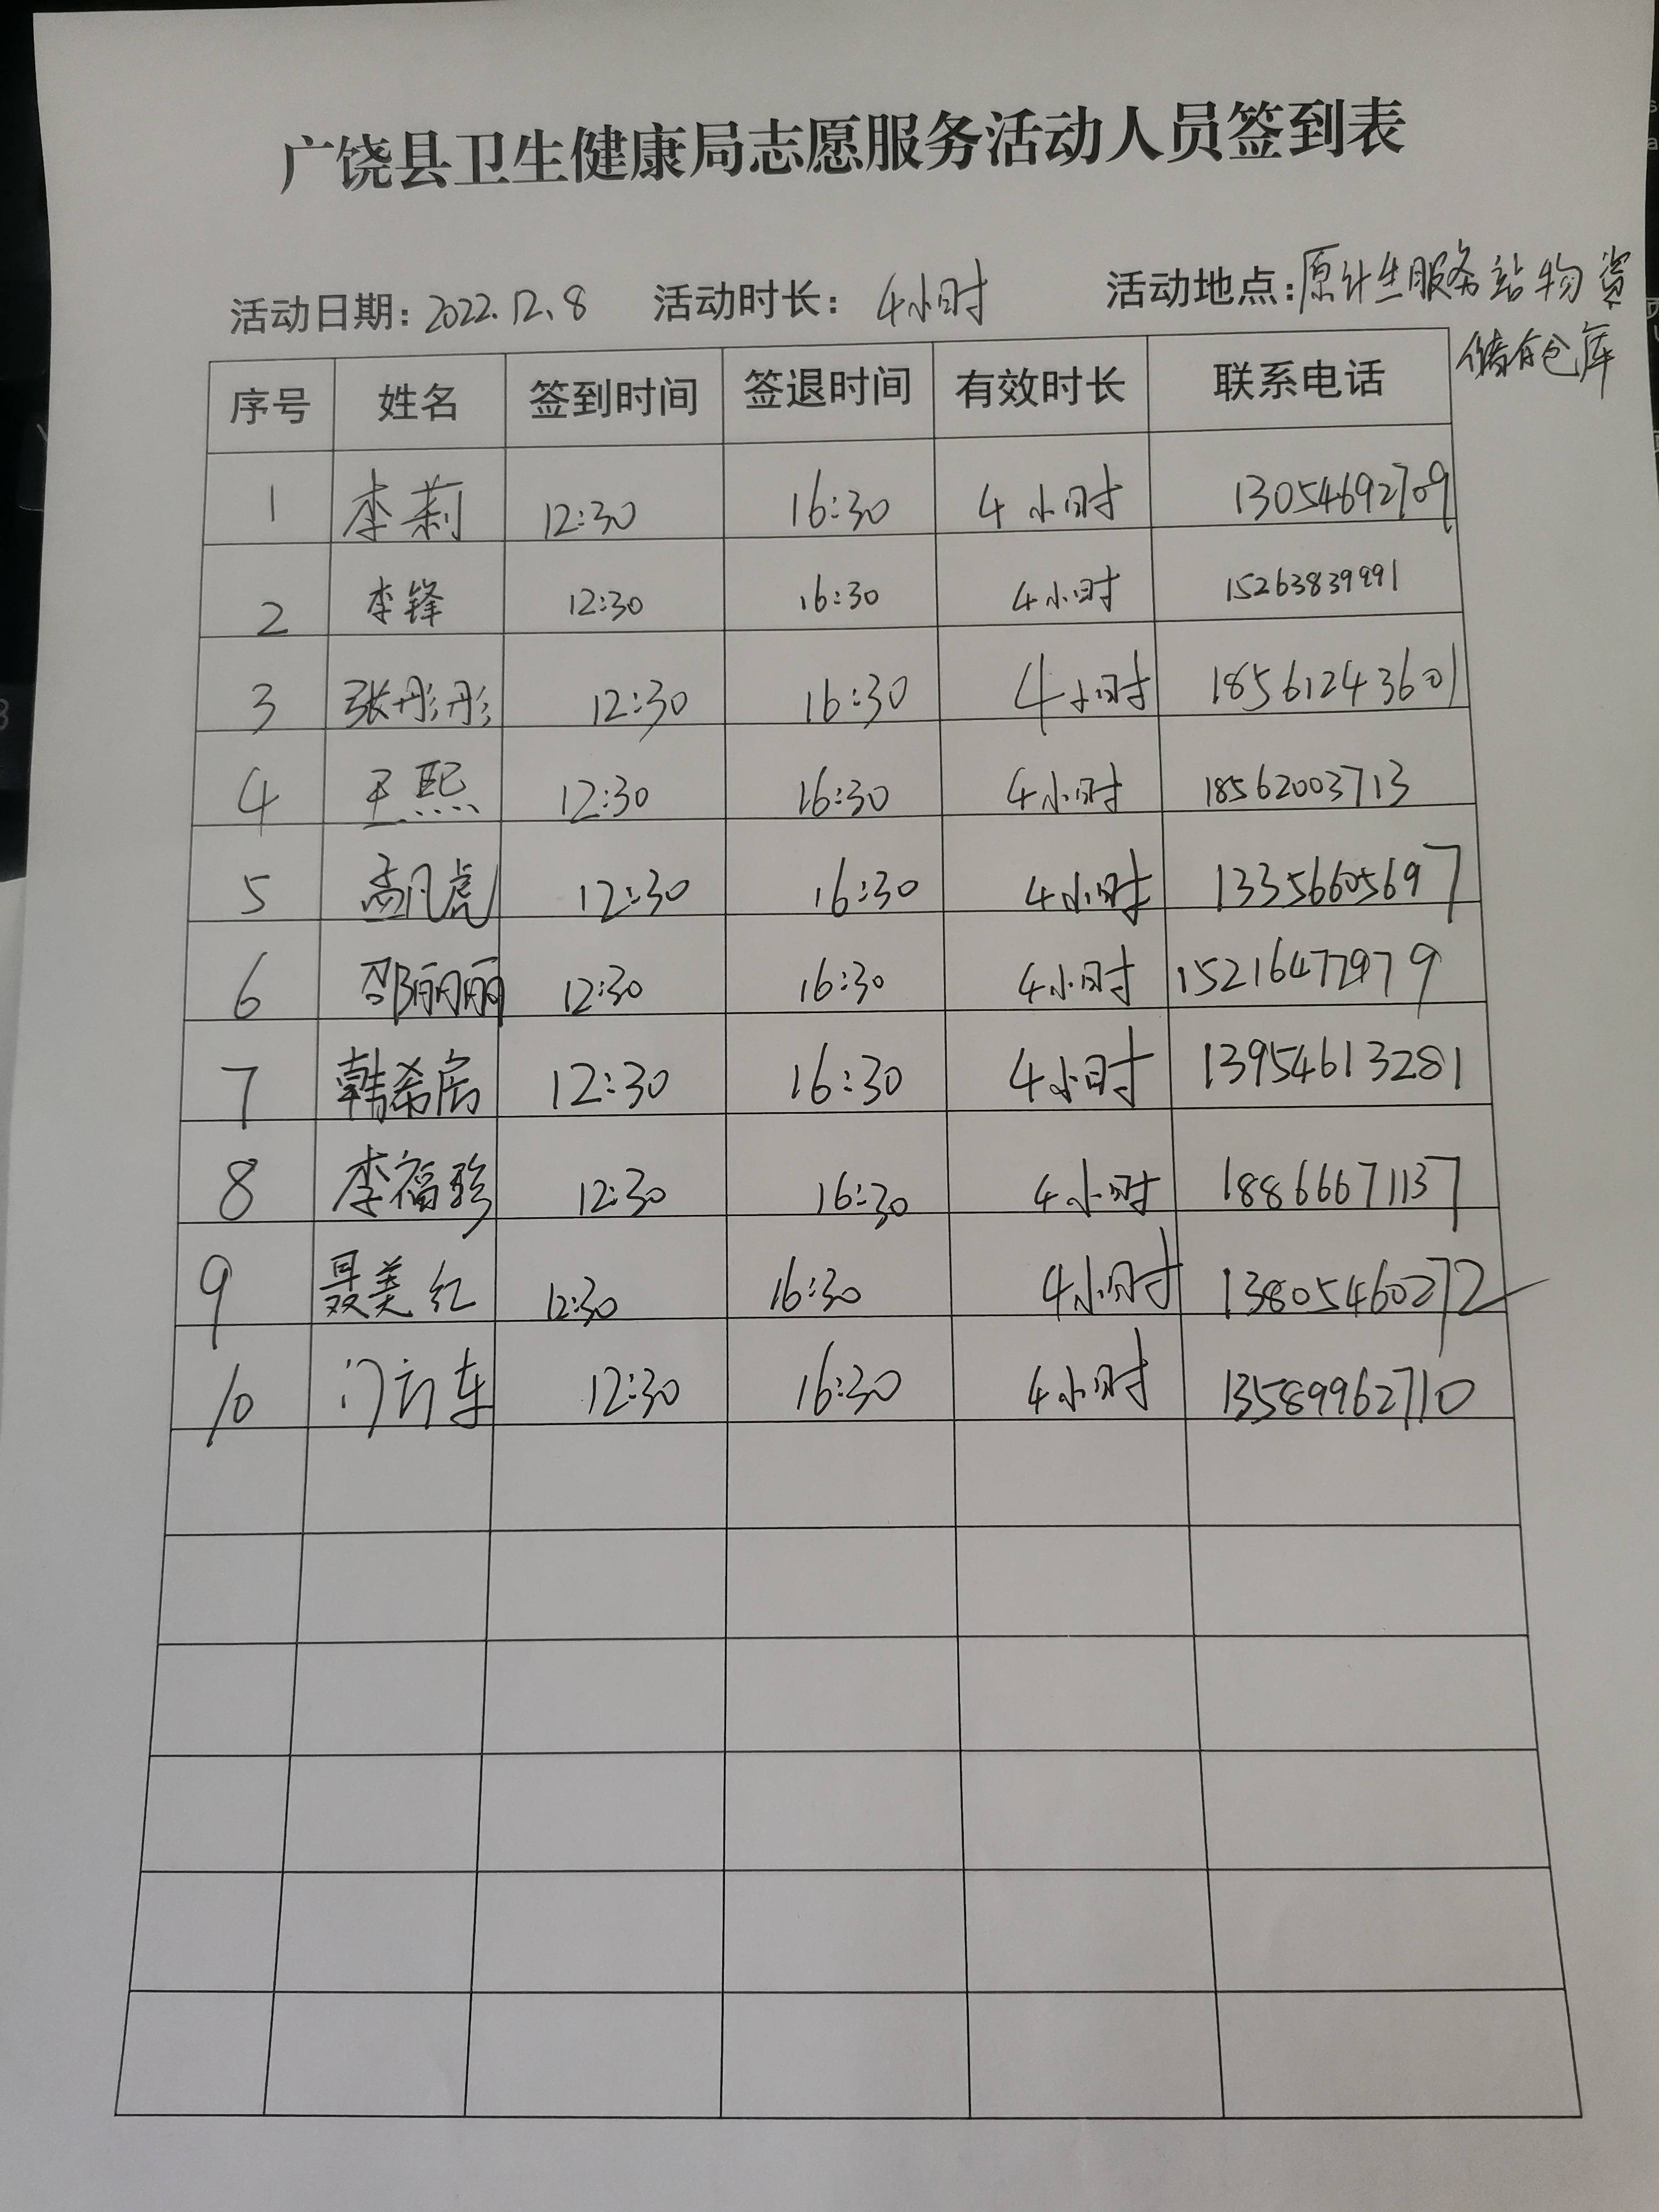 广饶县卫生健康局志愿服务活动人员签到表
活动日期：2022.12.8 活动时长： 4小时 活动地点：原计生服务站物资
储存仓库
序号 姓名 签到时间 签退时间 有效时长 联系电话
1 李莉 12:30 16:30 4小时 13054692709
2 李锋 12:30 16:30 4小时 15263839991
3 张彤彤 12:30 16:30 4小时 18561243601
4 王熙 12:30 16:30 4小时 18562003713
5 孟凡虎 12:30 16:30 4小时 13356605697
6 邵丽丽 12:30 16:30 4小时 15216477979
7 韩希房 12:30 16:30 4小时 13954613281
8 李福珍 12:30 16:30 4小时 18866671137
9 聂美红 12:30 16:30 4小时 13805460272
10 12:30 16:30 4小时 13589962710